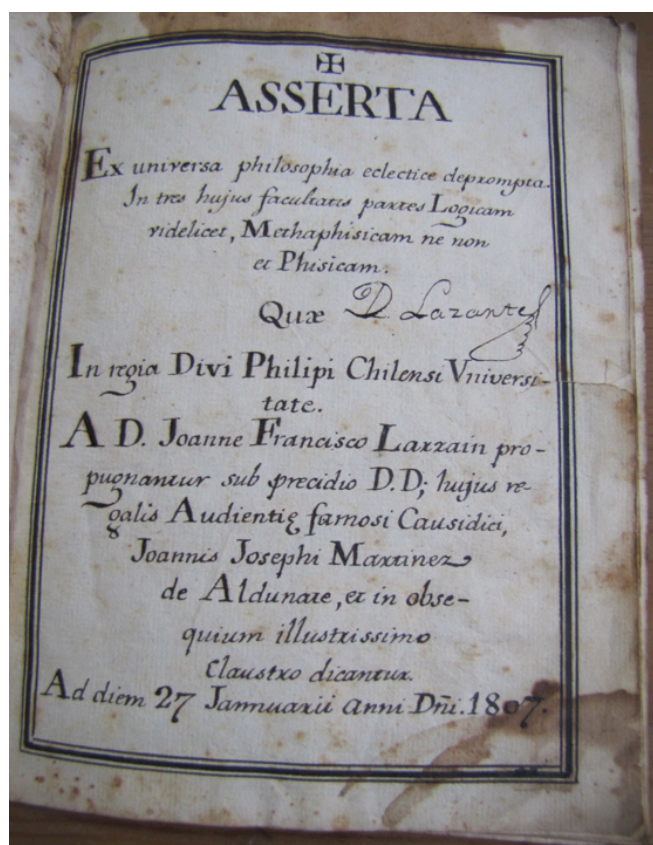 ✠
ASSERTA
Ex universa philosophia eclectice deprompta.
In tres hujus facultatis partes Logicam
videlicet, Methaphisicam ne non
et Phisicam.
Quæ D Lazante
In regia Divi Philipi Chilensi Vniversi-
tate.
A D. Joanne Francisco Larrain pro-
pugnantur sub precidio D.D; hujus re-
galis Audientię famosi Causidici,
Joannis Josephi Martinez
de Aldunate, et in obse-
quium illustrissimo
Claustro dicantur.
Ad diem 27 Jannuarii anni Dñi. 1807.